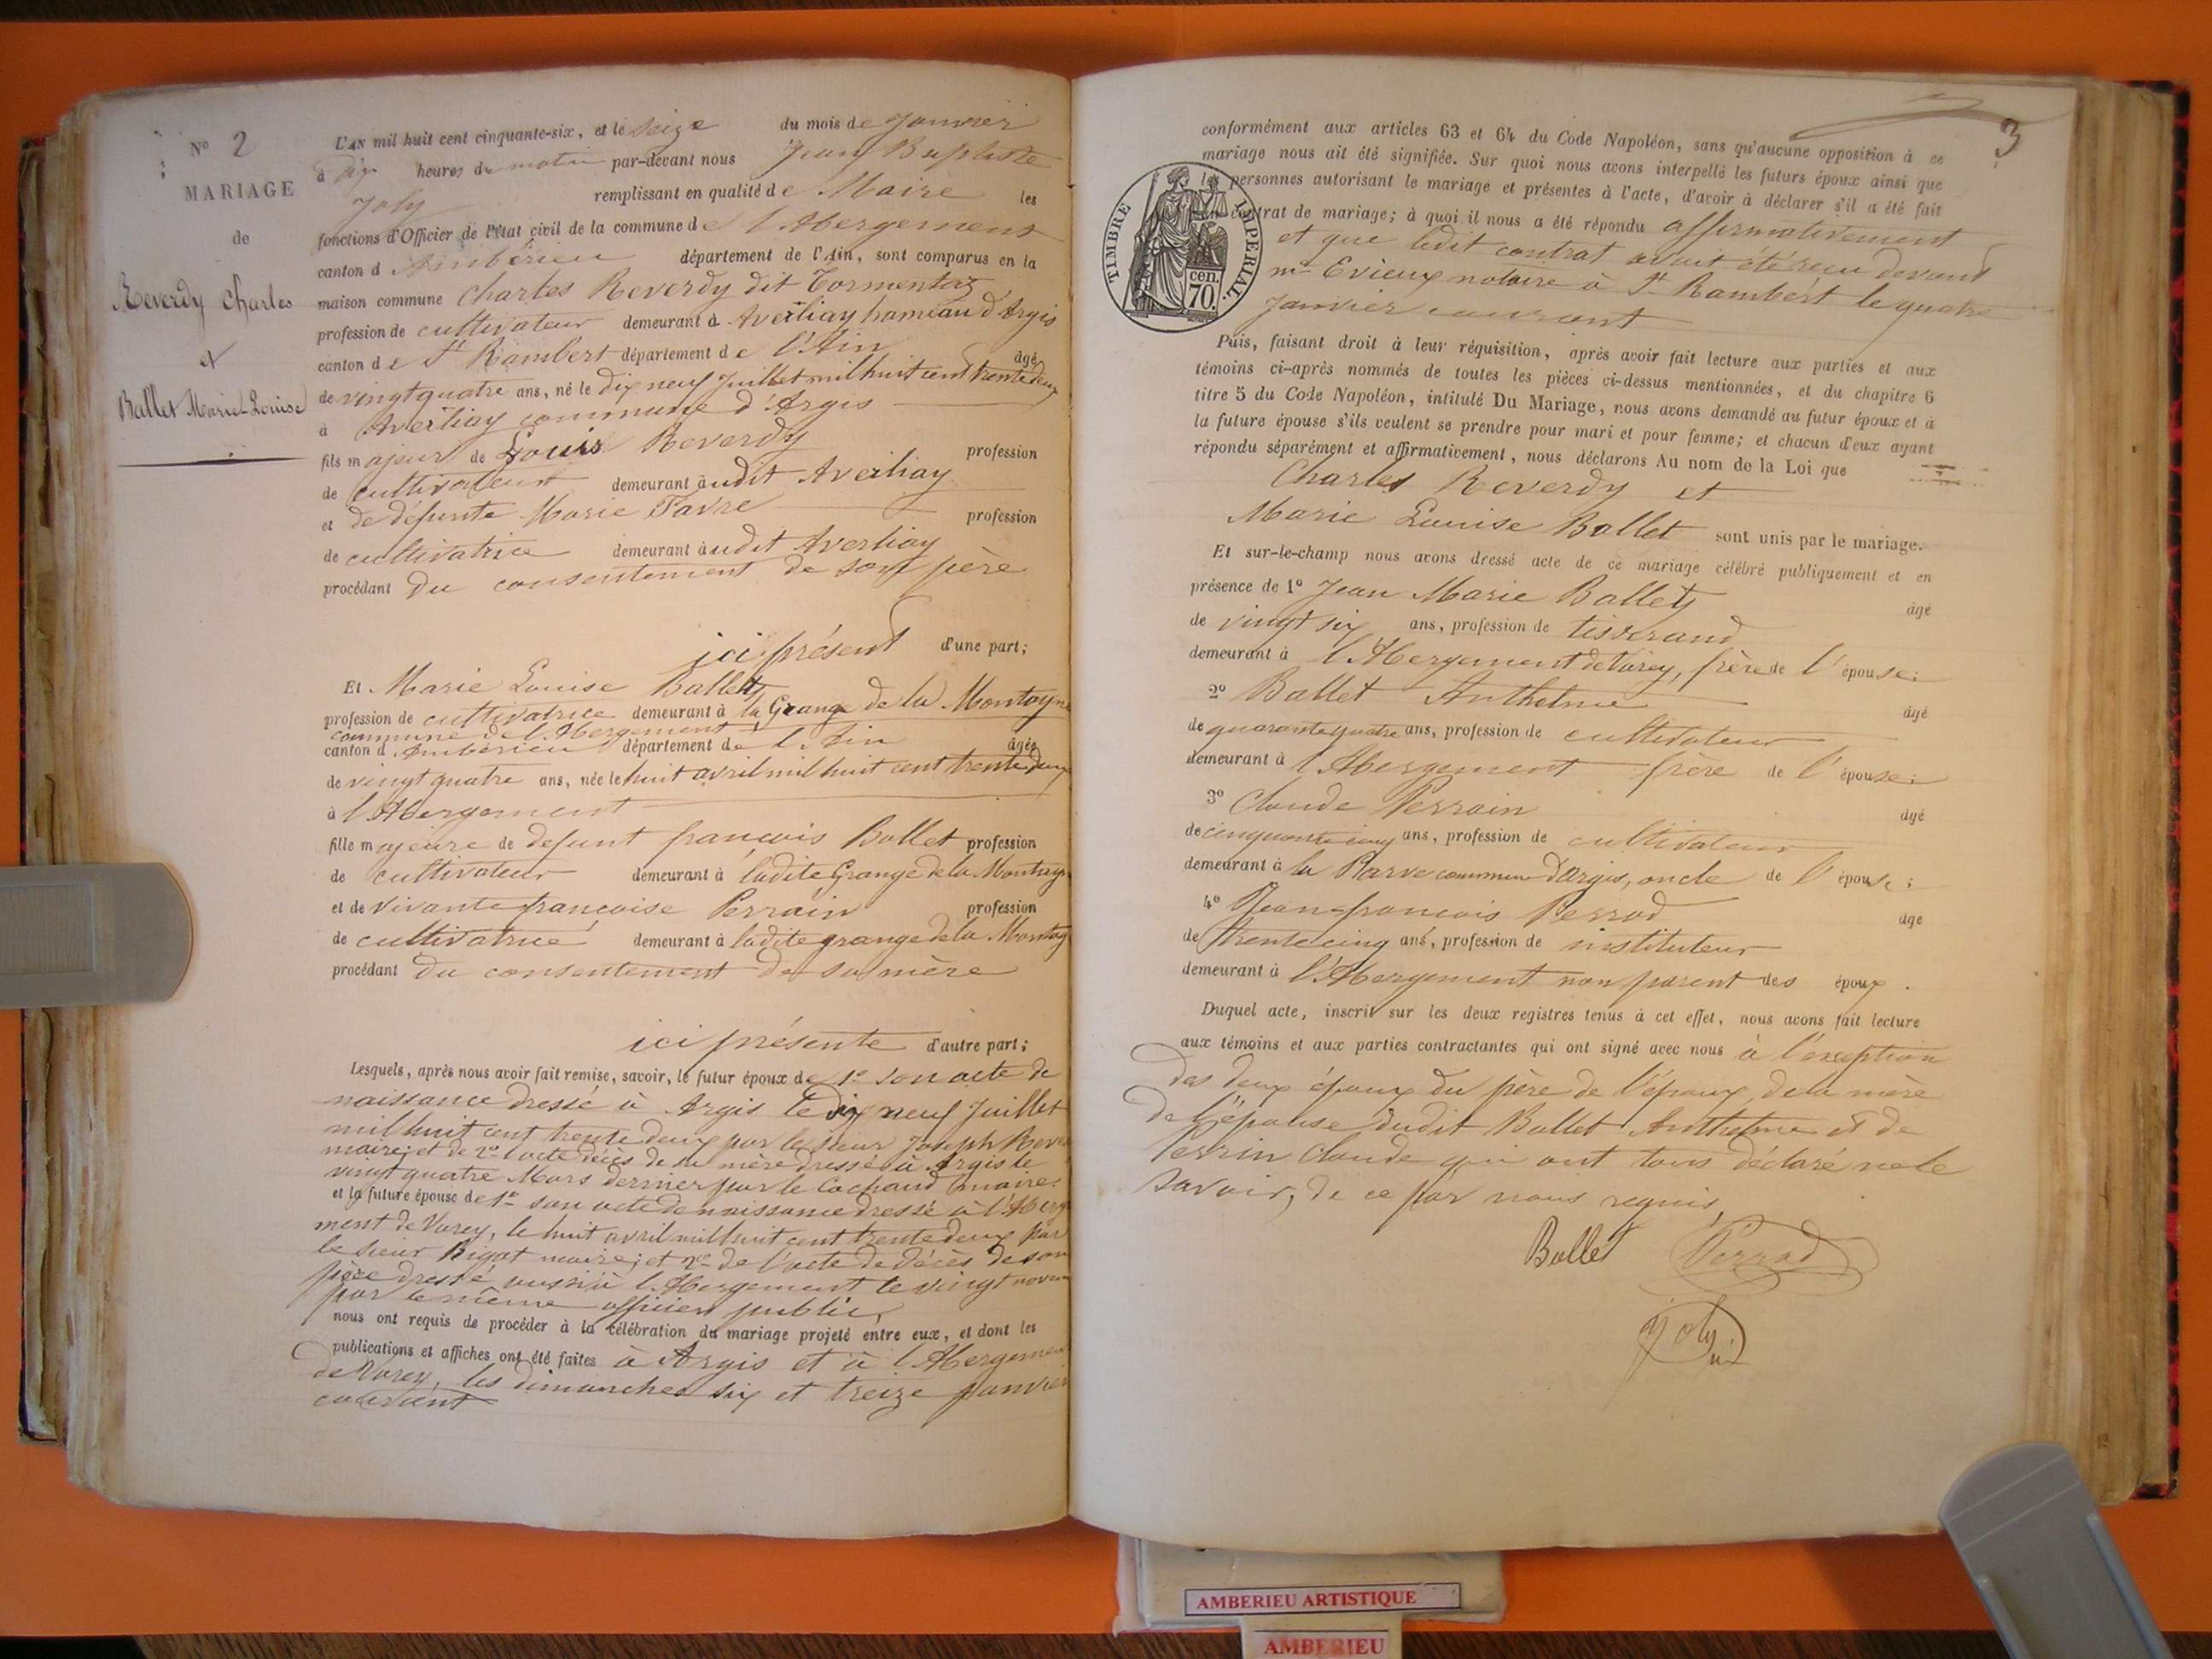 N° 2
MARIAGE
de
Reverdy Charles
et
Ballet Marie-Louise
L'AN mil huit cent cinquante-six, et le seize du mois de Janvier
à dix heures du matin par-devant nous Jean Baptiste
Joly remplissant en qualité de Maire les
fonctions d'Officier de l'état civil de la commune de l'Abergement
canton d'Ambérieu département de l'Ain, sont comparus en la
maison commune Charles Reverdy dit Tormentaz
profession de cultivateur demeurant à Averliay hameau d'Argis
canton de St Rambert département de l'Ain âgé
de vingt quatre ans, né le dix neuf Juillet mil huit cent trente deux
à Averliay commune d'Argis
fils majeur de Louis Reverdy profession
de cultivateur demeurant audit Averliay
et de défunte Marie Favre profession
de cultivatrice demeurant audit Averliay
procédant du consentement de son père
ici présent d'une part;
Et Marie Louise Ballet
profession de cultivatrice demeurant à la Grange de la Montagne
commune de l'Abergement
canton d'Ambérieu département de l'Ain âgée
de vingt quatre ans, née le huit avril mil huit cent trente deux
à l'Abergement
fille majeure de defunt françois Ballet profession
de cultivateur demeurant à ladite Grange de la Montagne
et de vivante françoise Perrain profession
de cultivatrice demeurant à ladite grange de la Montag
procédant du consentement de sa mère
ici présente d'autre part;
Lesquels, après nous avoir fait remise, savoir, le futur époux de 1° son acte de
naissance dressé à Argis le dix neuf Juillet
mil huit cent trente deux par le sieur Joseph Rever
maire; et de 2° l'acte décès de sa mère dressé à Argis le
vingt quatre Mars dernier par le Cochaud maire.
et la future épouse de 1° son acte de naissance dressé à l'Aberge
ment de Varey, le huit avril mil huit cent trente deux par
le sieur Bigot maire; et 2° de l'acte de décès de son
père dressé aussi à l'Abergement le vingt novem
par le même officier public,
nous ont requis de procéder à la célébration du mariage projeté entre eux, et dont les
publications et affiches ont été faites à Argis et à l'Abergement
de Varey, les dimanches six et treize Janvier
courant
3
TIMBRE IMPERIAL.
cen.
70.
conformément aux articles 63 et 64 du Code Napoléon, sans qu'aucune opposition à ce
mariage nous ait été signifiée. Sur quoi nous avons interpellé les futurs époux ainsi que
les personnes autorisant le mariage et présentes à l'acte, d'avoir à déclarer s'il a été fait
contrat de mariage; à quoi il nous a été répondu affirmativement
et que ledit contrat avait été reçu devant
me Evieux notaire à St Rambert le quatre
Janvier courant
Puis, faisant droit à leur réquisition, après avoir fait lecture aux parties et aux
témoins ci-après nommés de toutes les pièces ci-dessus mentionnées, et du chapitre 6
titre 5 du Code Napoléon, intitulé Du Mariage, nous avons demandé au futur époux et à
la future épouse s'ils veulent se prendre pour mari et pour femme; et chacun d'eux ayant
répondu séparément et affirmativement, nous déclarons Au nom de la Loi que
Charles Reverdy et
Marie Louise Ballet sont unis par le mariage.
Et sur-le-champ nous avons dressé acte de ce mariage célébré publiquement et en
présence de 1° Jean Marie Ballet âgé
de vingt six ans, profession de tisserand
demeurant à l'Abergement de Varey, frère de l'épouse;
2° Ballet Anthelme âgé
de quarante quatre ans, profession de cultivateur
demeurant à l'Abergement frère de l'épouse;
3° Claude Perrain âgé
de cinquante cinq ans, profession de cultivateur
demeurant à la Barve commune d'Argis, oncle de l'épouse;
4° Jean-françois Perrod âgé
de trente cinq ans, profession de instituteur
demeurant à l'Abergement non parent des époux.
Duquel acte, inscrit sur les deux registres tenus à cet effet, nous avons fait lecture
aux témoins et aux parties contractantes qui ont signé avec nous à l'exception
des deux époux du père de l'époux, de la mère
de l'épouse dudit Ballet Anthelme et de
Perrin Claude qui ont tous déclaré ne le
savoir, de ce par nous requis,
Ballet Perrod
Joly
AMBERIEU ARTISTIQUE
AMBERIEU